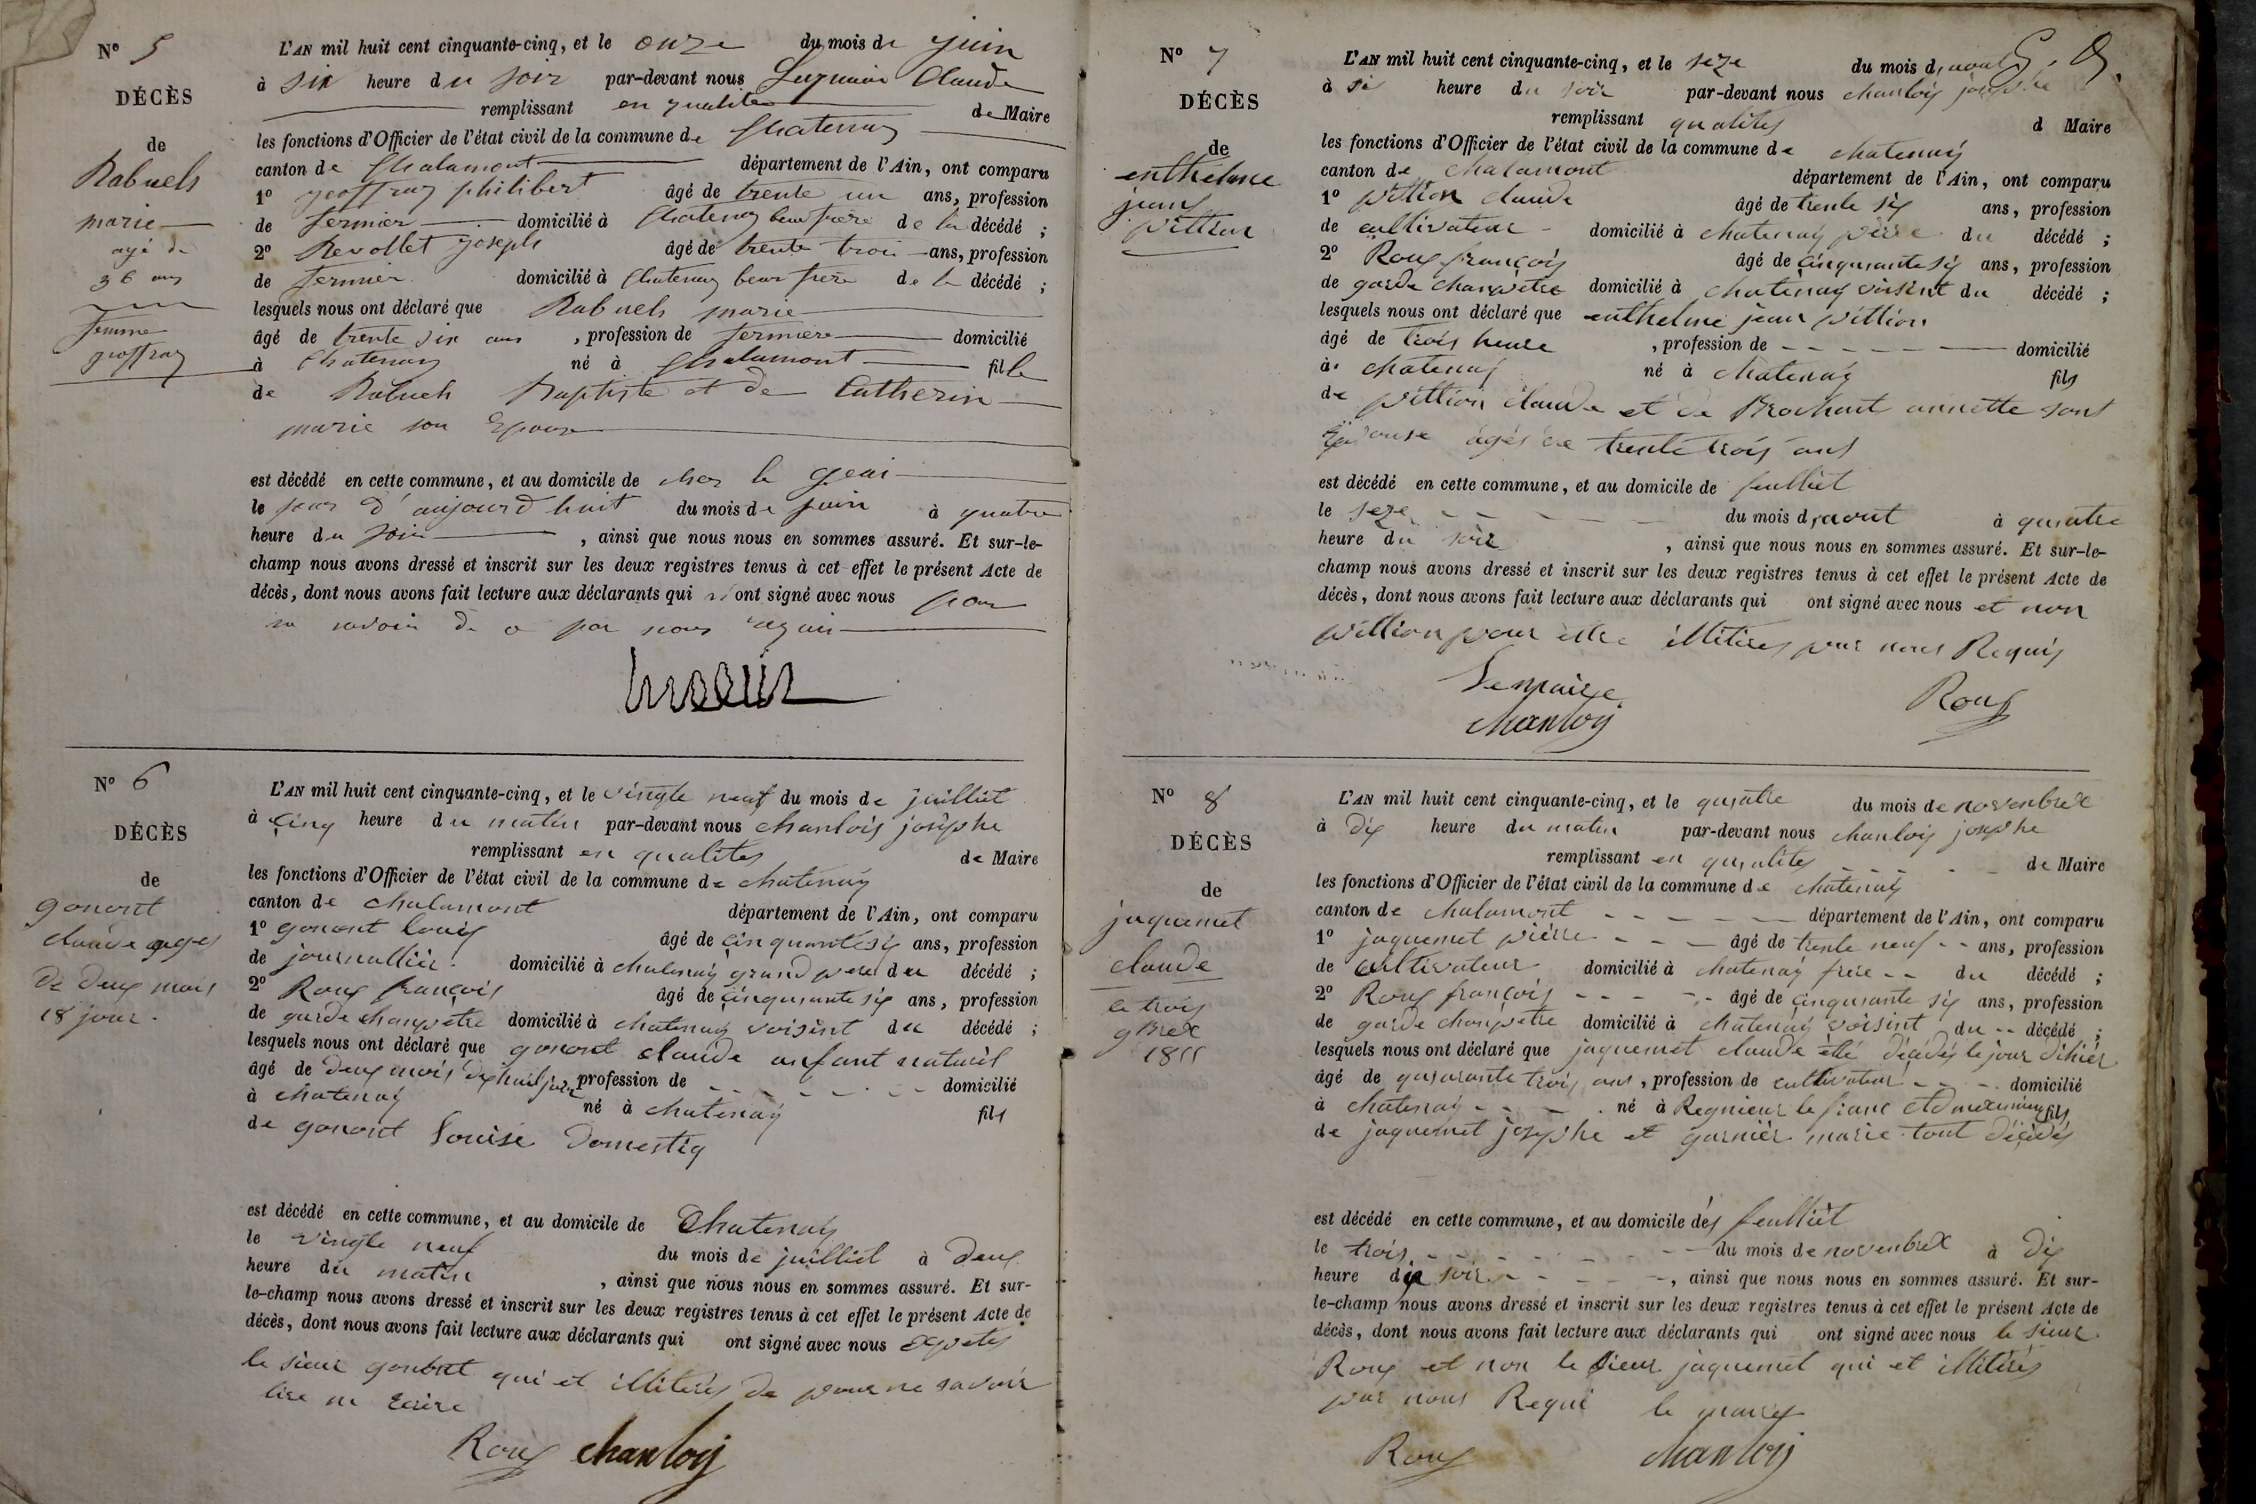 Nº 5
DÉCÈS
de
Rabuels
marie
agé de
36 ans
femme
geoffray
L'AN mil huit cent cinquante-cinq, et le onze du mois de juin
à six heure du soir par-devant nous Claude
remplissant en qualité de Maire
les fonctions d'Officier de l'état civil de la commune de Chatenay
canton de Chalamont département de l'Ain, ont comparu
1º geoffray philibert âgé de trente un ans, profession
de fermier domicilié à Chatenay beau frère de la décédé ;
2º Revollet joseph âgé de trente trois ans, profession
de fermier domicilié à Chatenay beau frère de la décédé ;
lesquels nous ont déclaré que Rabuels marie
âgé de trente six ans , profession de fermiere domicilié
à Chatenay né à Chalamont fille
de Rabuels Baptiste et de Catherin
marie son Epouse
est décédé en cette commune, et au domicile de chez le geai
le jour d'aujourd huit du mois de juin à quatre
heure du soir , ainsi que nous nous en sommes assuré. Et sur-le-
champ nous avons dressé et inscrit sur les deux registres tenus à cet effet le présent Acte de
décès, dont nous avons fait lecture aux déclarants qui n'ont signé avec nous pour
ne savoir de ce par nous requis
Nº 6
DÉCÈS
de
gonont
claude agés
de deux mois
18 jour.
L'AN mil huit cent cinquante-cinq, et le vingte neuf du mois de juilliet
à cinq heure du matin par-devant nous chanloij josephe
remplissant en qualites de Maire
les fonctions d'Officier de l'état civil de la commune de chatenaÿ
canton de chalamont département de l'Ain, ont comparu
1º gonont louis âgé de cinquantesix ans, profession
de journallier. domicilié à chatenaÿ grand pere du décédé ;
2º Roux françois âgé de cinquante six ans, profession
de garde champetre domicilié à chatenaÿ voisint du décédé ;
lesquels nous ont déclaré que gonont claude anfant naturel
âgé de deux mois dixhuit jour profession de domicilié
à chatenaÿ né à chatenaÿ fils
de gonont Louise Domestiq
est décédé en cette commune, et au domicile de Chatenaÿ
le vingte neuf du mois de juilliet à deux
heure du matin , ainsi que nous nous en sommes assuré. Et sur-
le-champ nous avons dressé et inscrit sur les deux registres tenus à cet effet le présent Acte de
décès, dont nous avons fait lecture aux déclarants qui ont signé avec nous exsetés
le sieur gonont qui et illiterés de pour ne savoir
lire ni Ecrire
Roux chanloij
Nº 7
DÉCÈS
de
enthelme
jean
pittion
L'AN mil huit cent cinquante-cinq, et le seze du mois d'aout
à si heure du soir par-devant nous chanloij josephe
remplissant qualites d Maire
les fonctions d'Officier de l'état civil de la commune de chatenaÿ
canton de chalamont département de l'Ain, ont comparu
1º pittion claude âgé de trente six ans, profession
de cultivateur domicilié à chatenaÿ père du décédé ;
2º Roux françois âgé de cinquantesix ans, profession
de garde champetre domicilié à chatenaÿ voisint du décédé ;
lesquels nous ont déclaré que enthelme jean pittion
âgé de trois heure , profession de domicilié
à chatenaÿ né à chatenaÿ fils
de pittion claude et de Brochant annette sont
Epouse agés de trente trois ans
est décédé en cette commune, et au domicile de feulliet
le seze du mois d'aout à quatre
heure du soir , ainsi que nous nous en sommes assuré. Et sur-le-
champ nous avons dressé et inscrit sur les deux registres tenus à cet effet le présent Acte de
décès, dont nous avons fait lecture aux déclarants qui ont signé avec nous et non
pittion pour être illitires par nous Requis
Le maire Roux
chanloij
Nº 8
DÉCÈS
de
jaquemet
claude
le trois
9brex
1855
L'AN mil huit cent cinquante-cinq, et le quatre du mois de novenbrex
à dix heure du matin par-devant nous chanloij josephe
remplissant en qualites de Maire
les fonctions d'Officier de l'état civil de la commune de chatenaÿ
canton de chalamont département de l'Ain, ont comparu
1º jaquemet pierre âgé de trente neuf ans, profession
de cultivateur domicilié à chatenaÿ frere du décédé ;
2º Roux françois âgé de cinquante six ans, profession
de garde champetre domicilié à chatenaÿ voisint du décédé ;
lesquels nous ont déclaré que jaquemet claude été décédés le jour dihiér
âgé de quarante trois ans , profession de cultivateur domicilié
à chatenaÿ né à Regnieux le franc fils
de jaquemet josephe et garnier marie tout décédés
est décédé en cette commune, et au domicile dés feulliet
le trois du mois de novenbrex à dix
heure du soir , ainsi que nous nous en sommes assuré. Et sur-
le-champ nous avons dressé et inscrit sur les deux registres tenus à cet effet le présent Acte de
décès, dont nous avons fait lecture aux déclarants qui ont signé avec nous le sieur
Roux et non le sieur jaquemet qui et illitirés
par nous Requi le maire
Roux chanloij